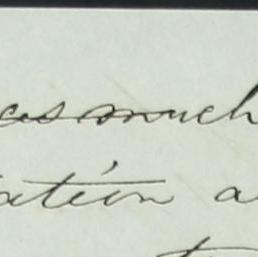 as much
ation a